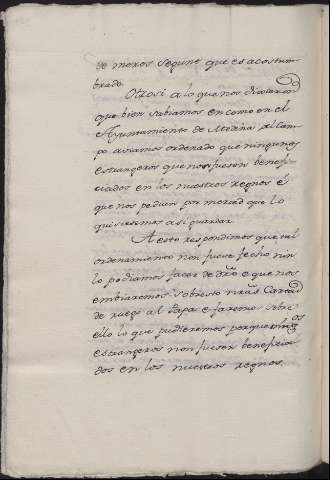 de menos segunt que es acostum
brado.
Otrosi a lo que nos dixieron
que bien sabiamos en como en el
Ayuntamiento de Medina del Cam
po aviamos ordenado que ningunos
estrangeros que non fuesen benefi
ciados en los nuestros regnos é
que nos pedien por merced que lo
quisiesemos asi guardar.
A esto respondimos que tal
ordenamiento non fuese fecho nin
lo podiamos facer de dro e que nos
embiaremos sobresto nras Cartas
de ruego al Papa e faremos sobre
ello lo que pudieremos porque los
estrangeros non fuesen beneficia
dos en los nuestros regnos.